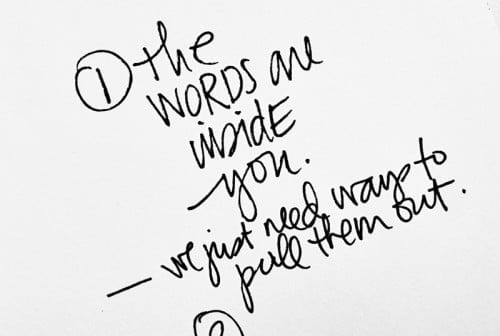 ① the
WORDS are
inside
you.
— we just need ways to
pull them out.
②